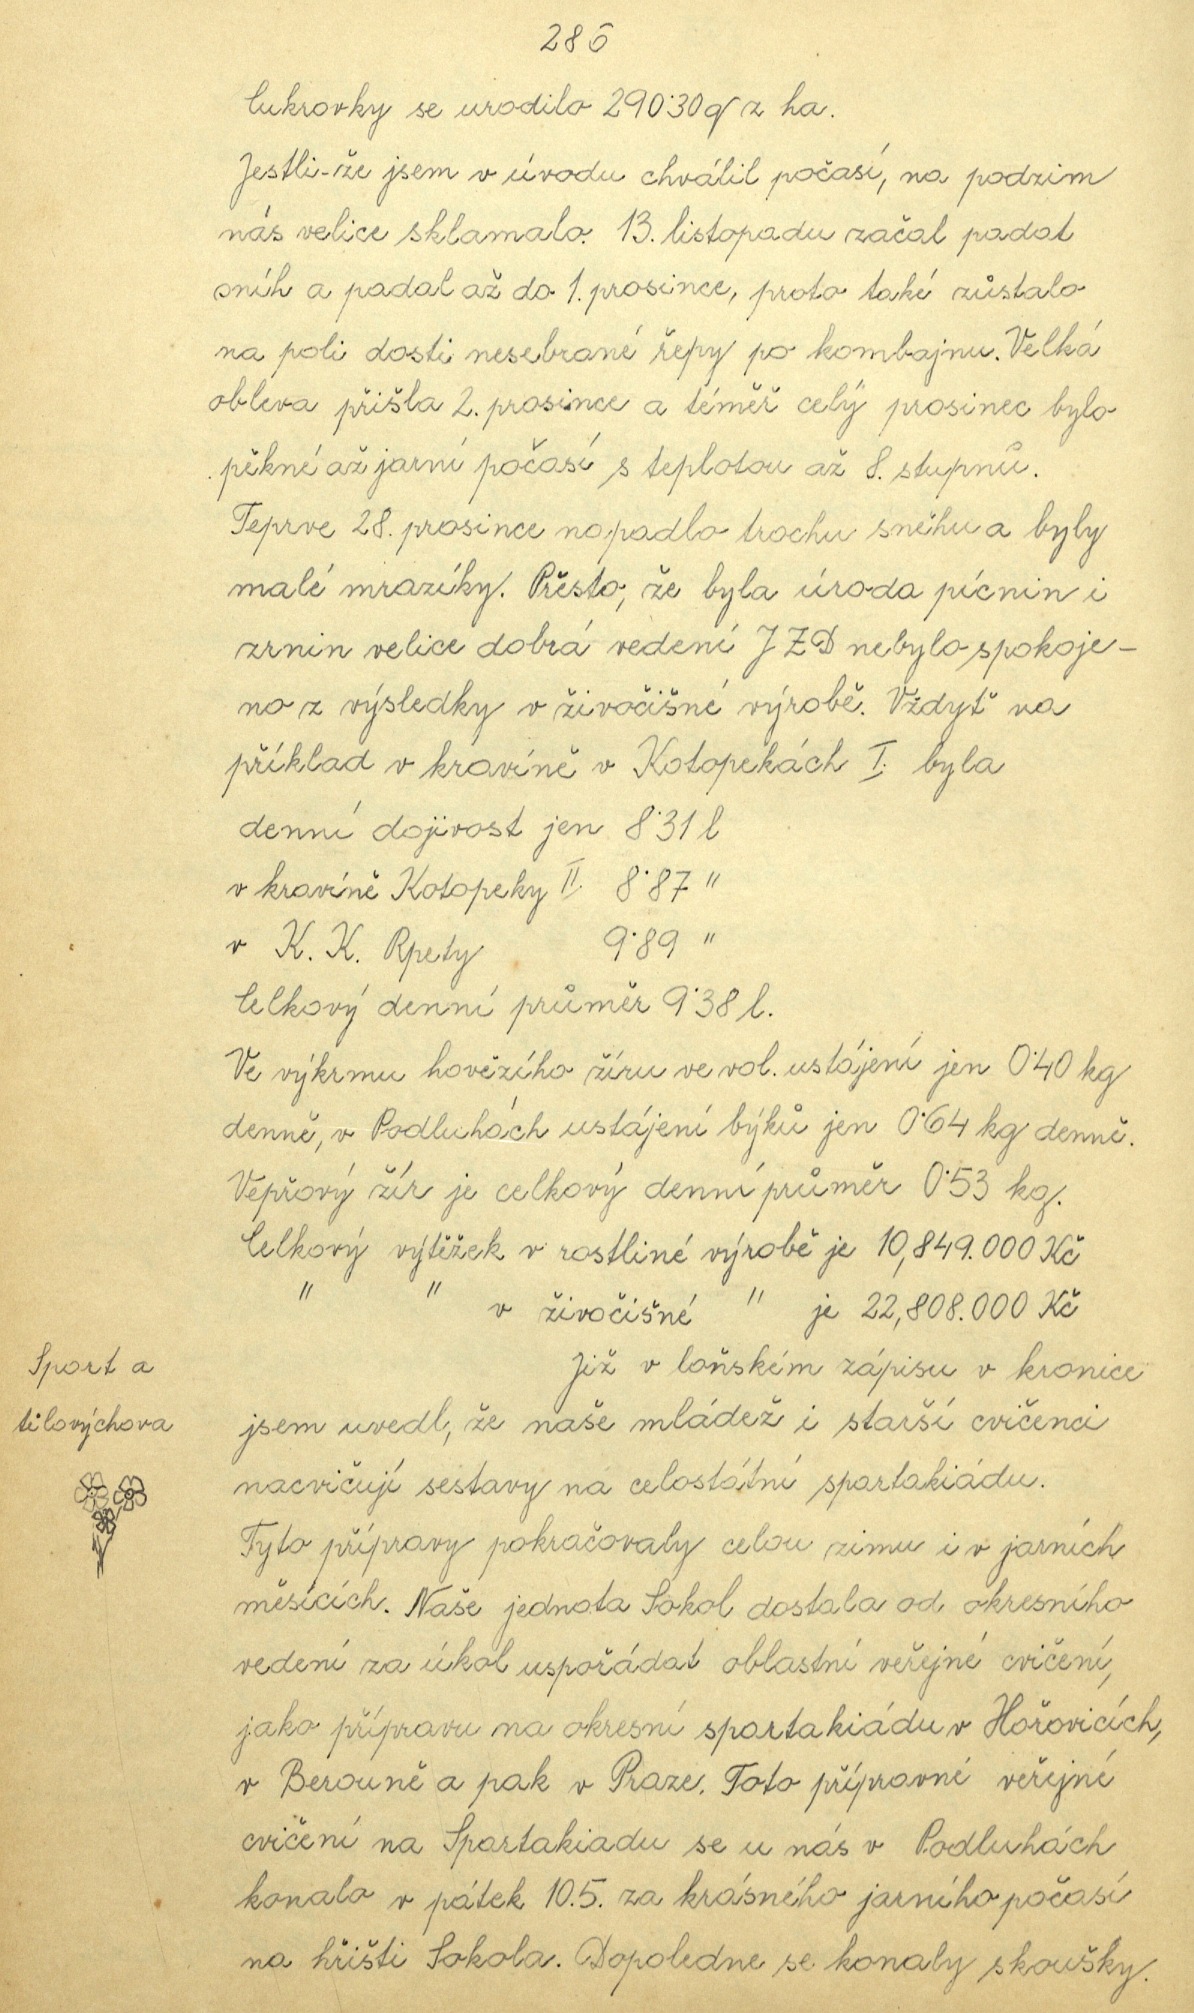 286
Cukrovky se urodilo 290˙30 q z ha.
Jestli-že jsem v úvodu chválil počasí, na podzim
nás velice sklamalo. 13. listopadu začal padat
sníh a padal až do 1. prosince, proto také zůstalo
na poli dosti nesebrané řepy po kombajnu. Velká
obleva přišla 2. prosince a téměř celý prosinec bylo
pěkné až jarní počasí s teplotou až 8. stupnů.
Teprve 28. prosince napadlo trochu sněhu a byly
malé mrazíky. Přesto, že byla úroda pícnin i
zrnin velice dobrá vedení JZD nebylo spokoje-
no z výsledky v živočišné výrobě. Vždyť na
příklad v kravíně v Kotopekách I. byla
denní dojivost jen 8˙31 l
v kravíně Kotopeky II. 8˙87 "
v K. K. Rpety 9˙89 "
Celkový denní průměr 9˙38 l.
Ve výkrmu hovězího žíru ve vol. ustájení jen 0˙40 kg
denně, v Podluhách ustájení býků jen 0˙64 kg denně.
Vepřový žír je celkový denní průměr 0˙53 kg.
Celkový výtěžek v rostliné výrobě je 10,849.000 Kč
" " v živočišné " je 22,808.000 Kč
Sport a
tělovýchova
Již v loňském zápisu v kronice
jsem uvedl, že naše mládež i starší cvičenci
nacvičují sestavy na celostátní spartakiádu.
Tyto přípravy pokračovaly celou zimu i v jarních
měsících. Naše jednota Sokol dostala od okresního
vedení za úkol uspořádat oblastní veřejné cvičení,
jako přípravu na okresní spartakiádu v Hořovicích,
v Berouně a pak v Praze. Toto přípravné veřejné
cvičení na Spartakiadu se u nás v Podluhách
konalo v pátek 10.5. za krásného jarního počasí
na hřišti Sokola. Dopoledne se konaly skoušky.